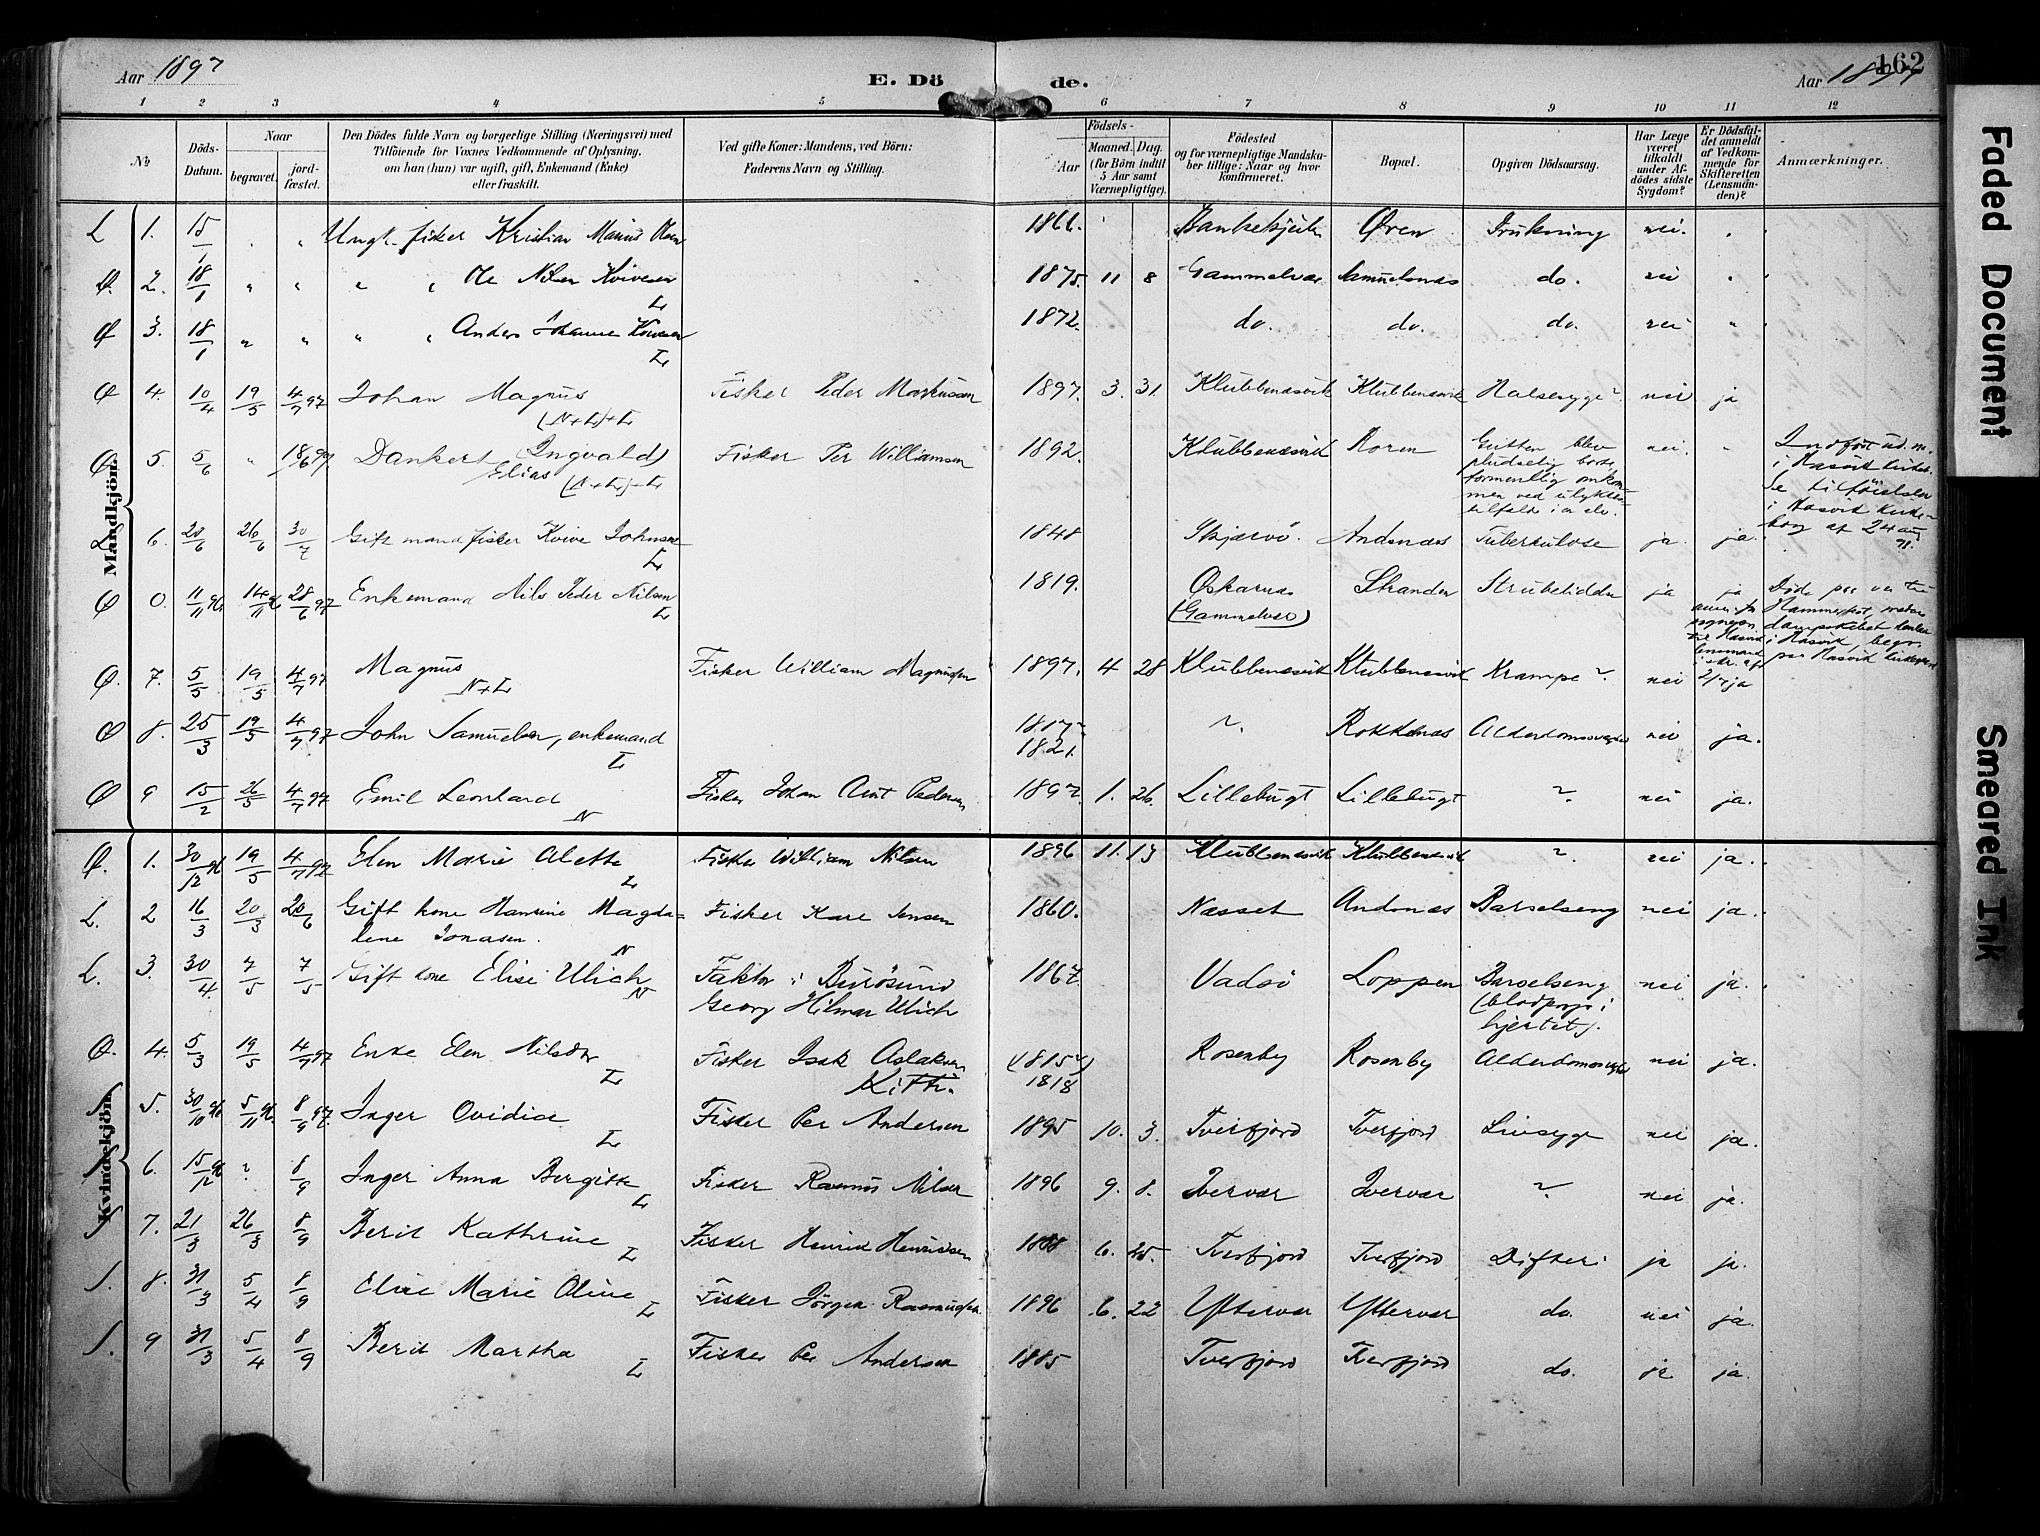 Aar 1897
E. Dö
de.
Aar 1897
162
1 2 3 4 5 6 7 8 9 10 11 12
№
Döds-
Datum.
Naar
begravet.
jord-
fæstet.
Den Dödes fulde Navn og borgerlige Stilling (Næringsvei) med
Tilföiende for Voxnes Vedkommende af Oplysning,
om han (hun) var ugift, gift, Enkemand (Enke)
eller fraskilt.
Ved gifte Koner: Mandens, ved Börn:
Faderens Navn og Stilling.
Födsels-
Aar
Maaned.
Dag.
(for Börn indtil
5 Aar samt
Værnepligtige).
Födested
og for værnepligtige Mandska-
ber tillige: Naar og hvor
konfirmeret.
Bopæl.
Opgiven Dödsaarsag.
Har Læge
været
tilkaldt
under Af-
dödes sidste
Sygdom?
Er Dödsfal-
det anmeldt
af Vedkom-
mende for
Skifteretten
(Lensmän-
den)?
Anmærkninger.
Mandkjön.
L 1. 15/1 " " Ungk. fisker Kristian Marius Olsen 1866. Øren Drukning nei. "
Ø. 2. 18/1 " " " " Ole Nilsen Kvivesen 1875. 11 8 Gammelvær Samuelsnæs do. nei "
L
Ø 3. 18/1 " " " " Anders Johannes Kvivesen 1872. do. do. do. nei "
L
Ø 4. 10/4 19/5 4/7 97 Johan Magnus Fisker Peder Markussen 1897. 3. 31. Klubbenæsvik Klubbenæsvik Halsesyge? nei ja
(N+L)+L
Ø 5. 5/6 " 18/6 97 Dankert Ingvald Fisker Per Williamsen 1892. Klubbenæsvik Roren Gutten blev nei. "
Elias (N+L)+L
pludselig borte,
formentlig omkom-
men ved ulykkes-
tilfælde i en elv.
Indført ud. m.
i Hasvik kirkeb.
Se tilføielsen
i Hasvik kirke-
bog af 24 aug
L 6. 28/6 26/6 30/7 Gift mand fisker Kvive Johnsen 1848 Skjærvö. Andsnæs Tuberkulose ja. ja.
L
Ø 0. 11/11 96 14/11 96 28/6 97 Enkemand Nils Peder Nilsen 1819. Oskarnæs Stranden Strubelidelse ja ja
L
(Gammelvær)
Døde paa vei til
Hammerfest, medens
dampskibet laa
i Hasvik, begr.
paa Hasvik kirkegaard
Ø. 7. 5/5 19/5 4/7 97 Magnus Fisker William Magnussen 1897. 4 28 Klubbenæsvik Klubbenæsvik Krampe? nei ja
N+L
Ø 8. 25/3 19/5 4/7 97 John Samuelsen, enkemand 1817? ? Rokkenæs Alderdomssvaghed nei ja.
L
1821.
Ø 9 15/2 26/5 4/7 97 Emil Leonhard Fisker Johan Arnt Pedersen 1897. 1. 26. Lillebugt Lillebugt ? nei ja.
N
Kvindekjön.
Ø. 1. 30/12 96 19/5 4/7 97 Elen Marie Alette Fisker William Nilsen 1896 11. 13 Klubbenæsvik Klubbenæsvik ? nei ja.
L
L. 2 16/3 20/3 20/6 Gift kone Hansine Magda= Fisker Kare Jensen 1860. Næsset Andsnæs Barselseng nei ja.
lene Jonasen. N
L. 3. 30/4. 7/5 7/5 Gift kone Elise Ulich Faktor i Bursösund 1867. Vadsö Loppen Barselseng nei ja.
N
Georg Hilmar Ulich (blodprop i
hjertet).
Ø. 4. 5/3 19/5 4/7 97 Enke Elen Nilsdtr Fisker Isak Aslaksen (1815?) Rosenby Rosenby Alderdomssvaghed nei ja.
L Kitti. 1818
S 5. 30/10 96 5/11 96. 8/9 97. Inger Ovidise Fisker Per Andersen 1895 10. 3. Tverfjord Tverfjord Livsyge nei ja.
L
S 6. 15/12 96 ? 8/9 Inger Anna Bergitte Fisker Rasmus Nilsen 1896 9. 8. Ivervær Ivervær ? nei ja.
L
S 7. 21/3 26/3 8/9 Berit Kathrine Fisker Henrik Henriksen 1888 6. 25. Tverfjord Tverfjord Difteri ja ja.
L
S. 8. 31/3 5/4 8/9 Eline Marie Oline Fisker Jörgen Rasmussen 1896 6. 22 Yttervær Yttervær do. nei ja.
L
S. 9 31/3 5/4 8/9 Berit Martha Fisker Per Andersen 1885 Tverfjord Tverfjord do. ja ja.
L
Faded Document
Smeared Ink